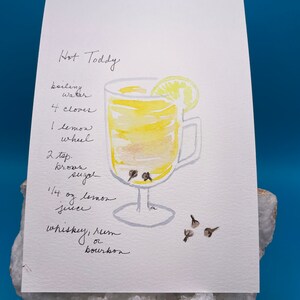 Hot Toddy
boiling
water
4 cloves
1 lemon
wheel
2 tsp
brown
sugar
1/4 oz lemon
juice
whiskey, rum
or
bourbon